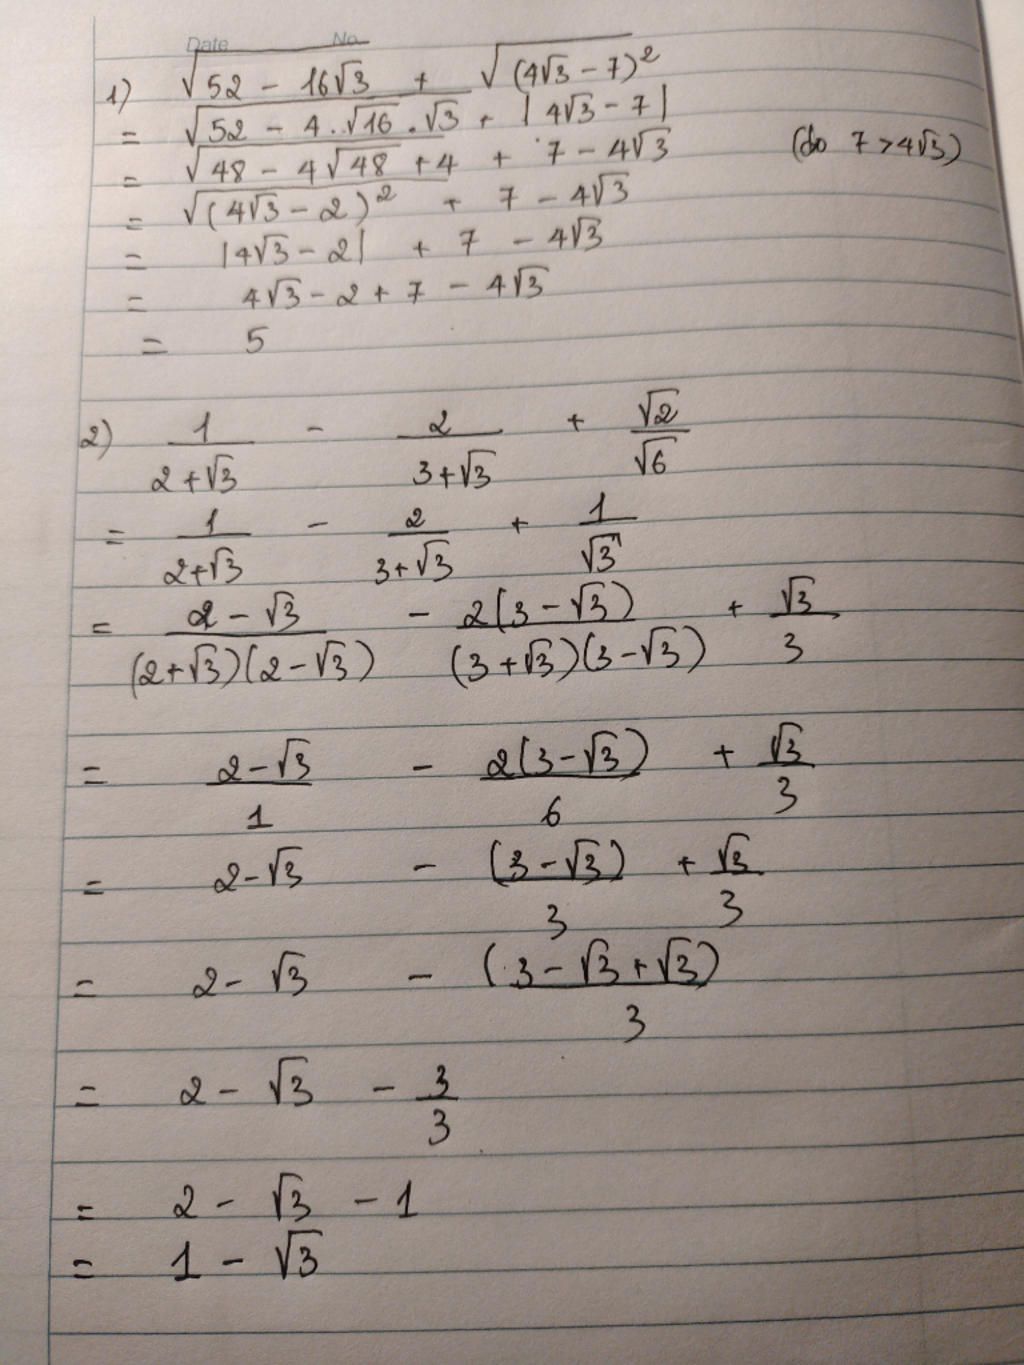 Date No
1) √(52 - 16√3) + √((4√3 - 7)²)
= √(52 - 4.√16.√3) + |4√3 - 7|
= √(48 - 4√48 + 4) + 7 - 4√3 (do 7 > 4√3)
= √((4√3 - 2)²) + 7 - 4√3
= |4√3 - 2| + 7 - 4√3
= 4√3 - 2 + 7 - 4√3
= 5
2) 1/(2+√3) - 2/(3+√3) + √2/√6
= 1/(2+√3) - 2/(3+√3) + 1/√3
= (2-√3)/((2+√3)(2-√3)) - 2(3-√3)/((3+√3)(3-√3)) + √3/3
= (2-√3)/1 - 2(3-√3)/6 + √3/3
= 2-√3 - (3-√3)/3 + √3/3
= 2-√3 - (3-√3+√3)/3
= 2 - √3 - 3/3
= 2 - √3 - 1
= 1 - √3